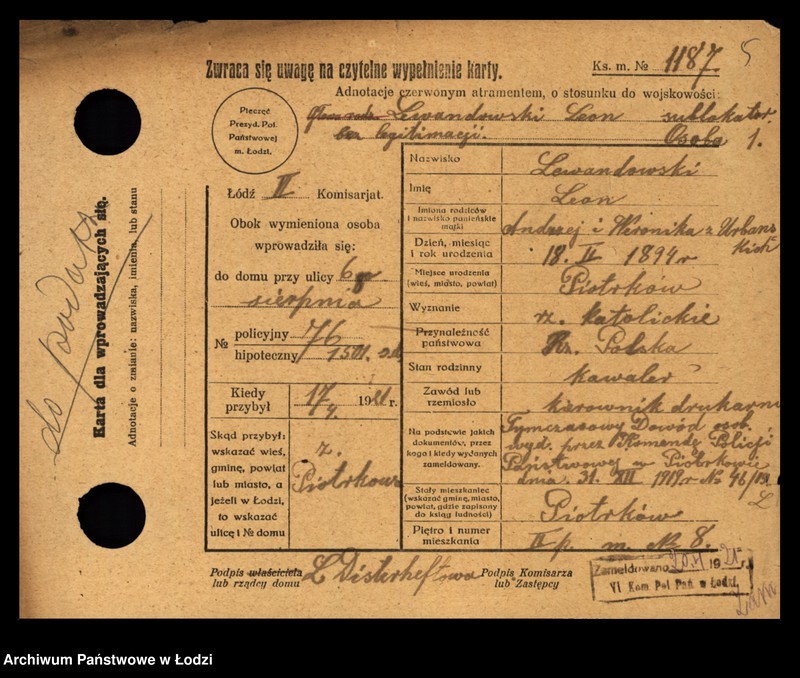 Zwraca się uwagę na czytelne wypełnienie karty.
Ks. m. № 1187
5
Adnotacje czerwonym atramentem, o stosunku do wojskowości:
Lewandowski Leon sublokator
legitimacji. Osoba 1.
Pieczęć
Prezyd. Pol.
Państwowej
m. Łodzi.
Łódź II Komisarjat.
Obok wymieniona osoba
wprowadziła się:
do domu przy ulicy 6go
sierpnia
№ policyjny 76
hipoteczny 1501.
Kiedy
przybył
1921r.
Skąd przybył:
wskazać wieś,
gminę, powiat
lub miasto, a
jeżeli w Łodzi,
to wskazać
ulicę i № domu
z.
Piotrkowa
Nazwisko Lewandowski
Imię Leon
Imiona rodziców
i nazwisko panieńskie
matki
Andrzej i Weronika z Urbańskich
Dzień, miesiąc
i rok urodzenia
18. IV 1894 r
Miejsce urodzenia
(wieś, miasto, powiat)
Piotrków
Wyznanie rz. katolickie
Przynależność
państwowa
Rz. Polska
Stan rodzinny kawaler
Zawód lub
rzemiosło
kierownik drukarni
Na podstawie jakich
dokumentów, przez
kogo i kiedy wydanych
zameldowany.
Tymczasowy Dowód osob.
wyd. przez Komendę Policji
Państwowej w Piotrkowie
dnia. 31. XII 1919r №
Stały mieszkaniec
(wskazać gminę, miasto,
powiat, gdzie zapisany
do ksiąg ludności)
Piotrków
Piętro i numer
mieszkania
II p. m. № 8.
Podpis właściciela
lub rządcy domu
L Disterheftowa
Podpis Komisarza
lub Zastępcy
Zameldowano 1921 r.
VI Kom Pol Pań w Łodzi
Karta dla wprowadzających się.
Adnotacje o zmianie: nazwiska, imienia, lub stanu
do podatk
Archiwum Państwowe w Łodzi